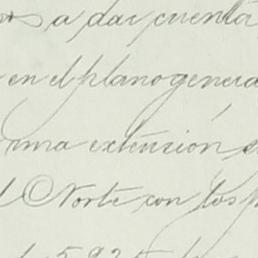 a dar cuenta
en el plano genera
una extensión
l Norte con los
5925